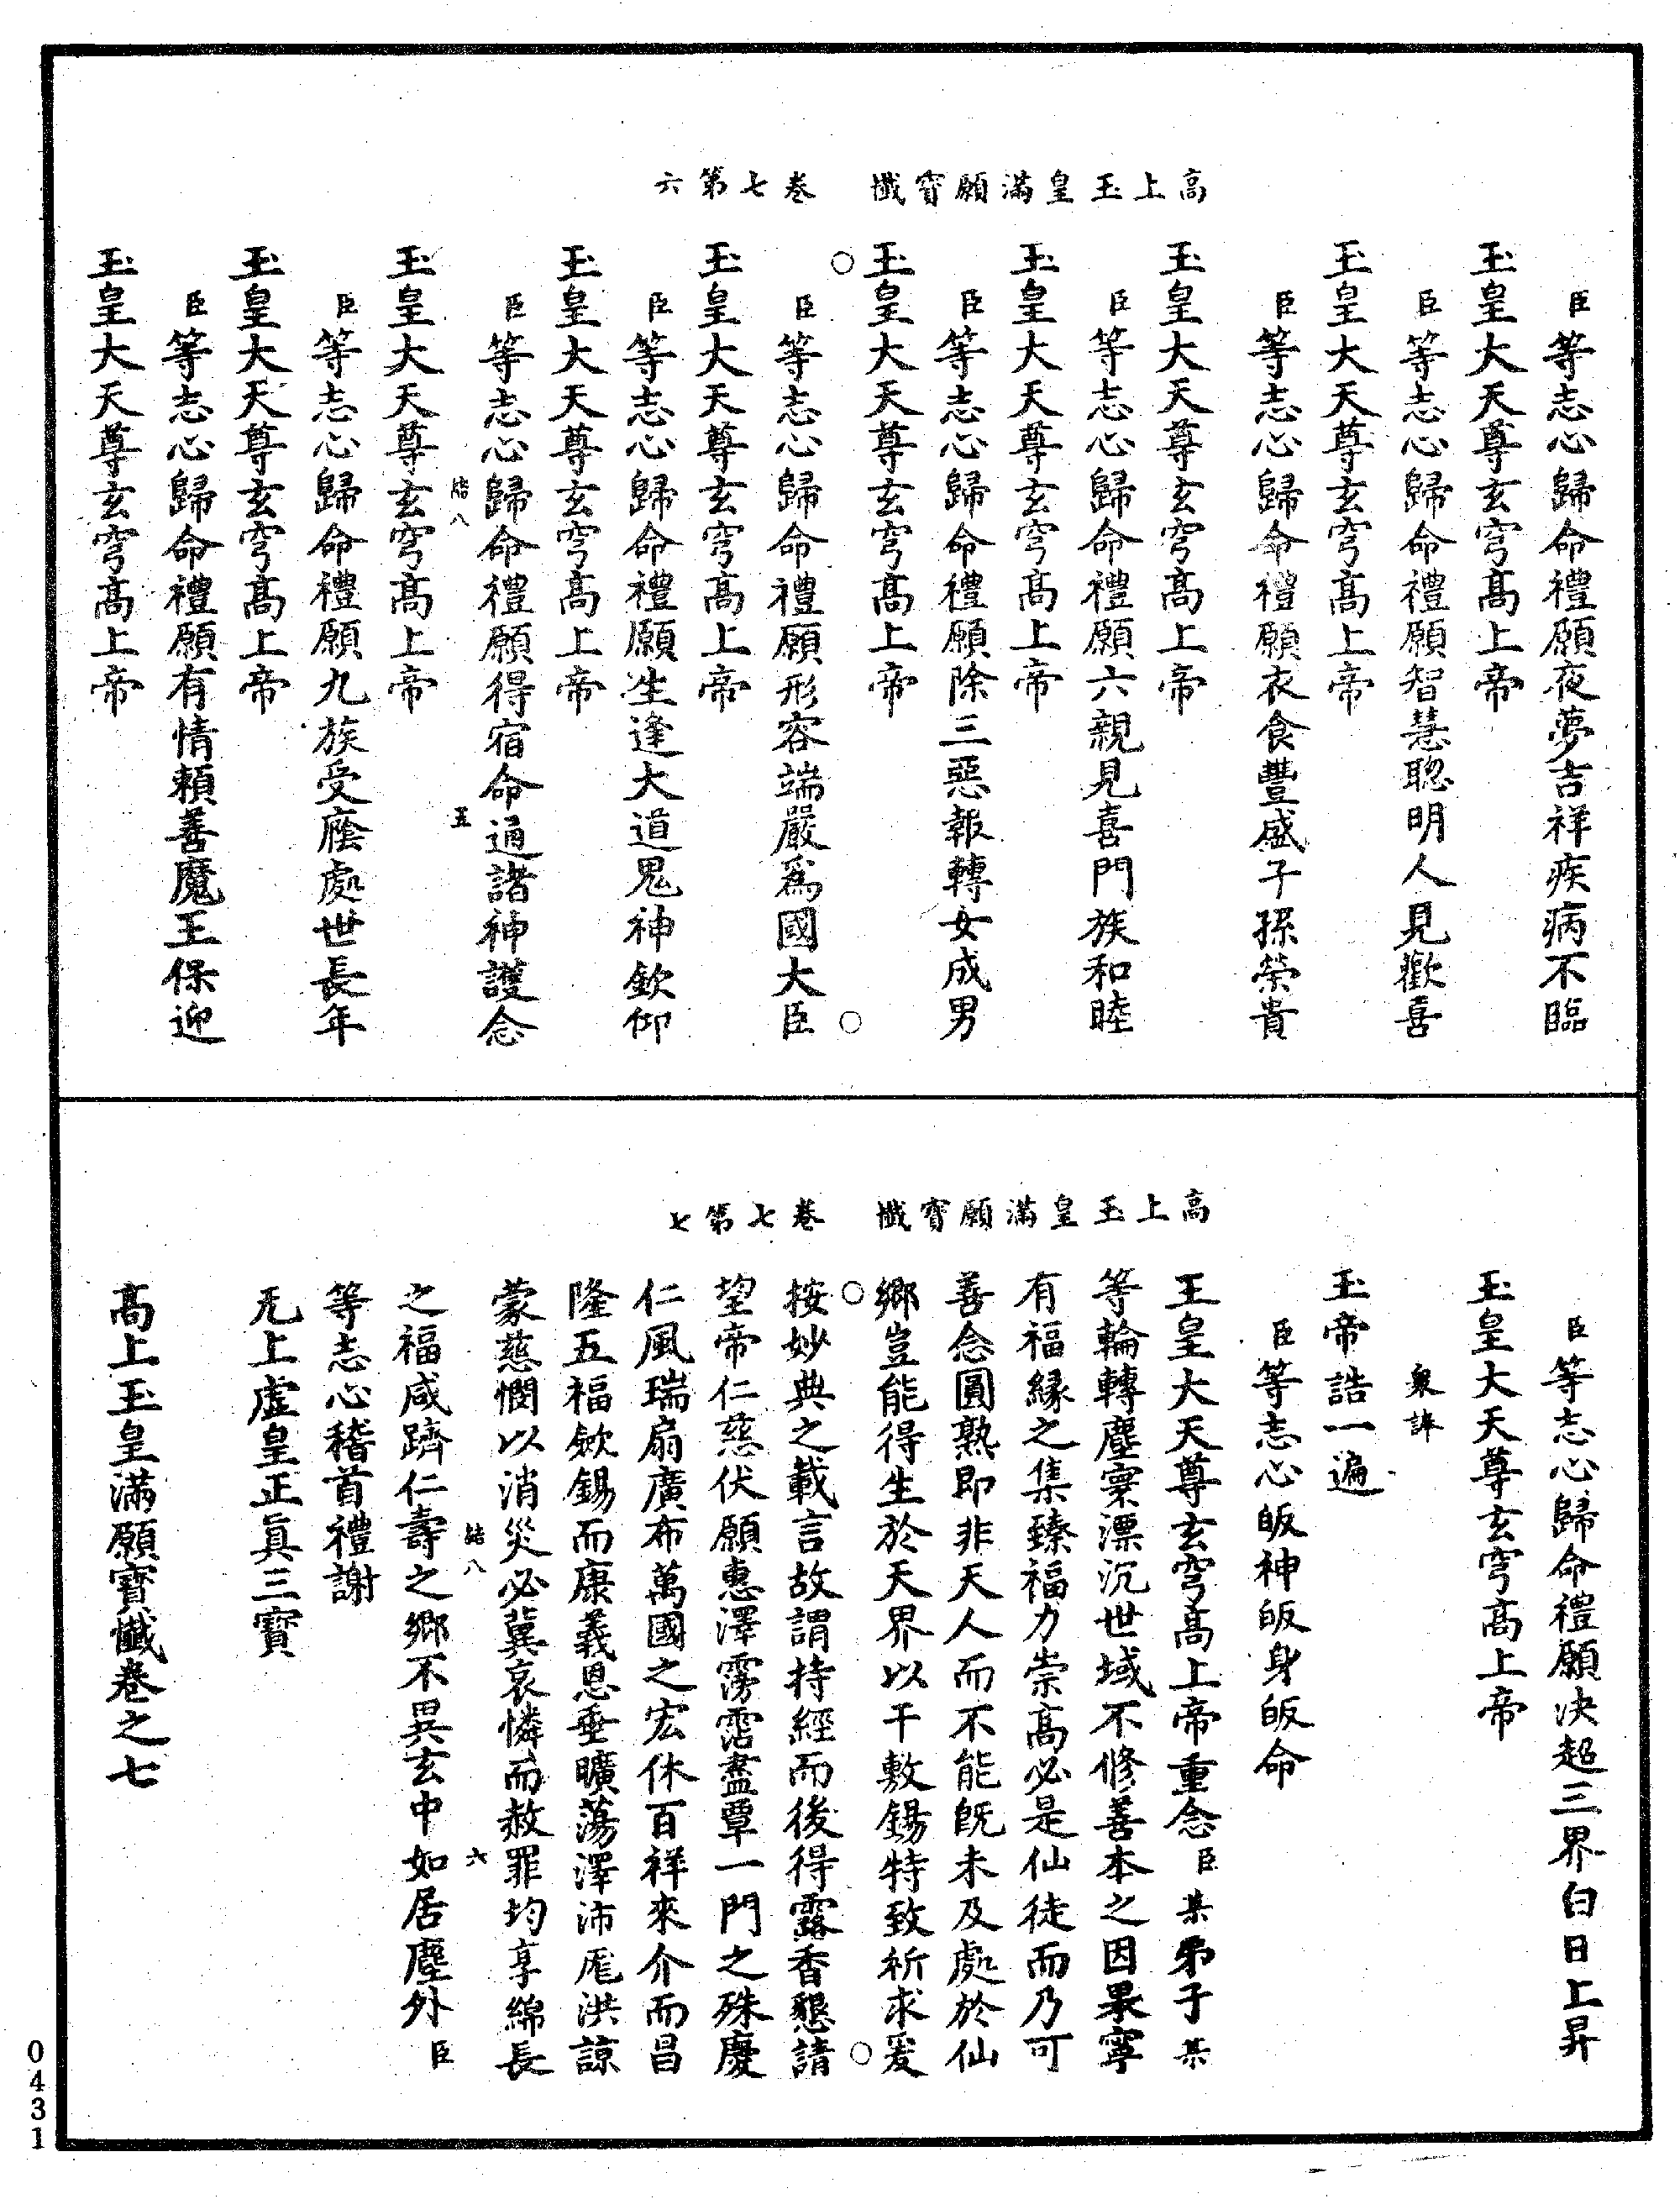 高上玉皇滿願寶懺 卷七第六
臣等志心歸命禮願夜夢吉祥疾病不臨
玉皇大天尊玄穹高上帝
臣等志心歸命禮願智慧聰明人見歡喜
玉皇大天尊玄穹高上帝
臣等志心歸命禮願衣食豐盛子孫榮貴
玉皇大天尊玄穹高上帝
臣等志心歸命禮願六親見喜門族和睦
玉皇大天尊玄穹高上帝
臣等志心歸命禮願除三惡報轉女成男
玉皇大天尊玄穹高上帝
臣等志心歸命禮願形容端嚴爲國大臣
玉皇大天尊玄穹高上帝
臣等志心歸命禮願生逢大道鬼神欽仰
玉皇大天尊玄穹高上帝
臣等志心歸命禮願得宿命通諸神護念
結八 五
玉皇大天尊玄穹高上帝
臣等志心歸命禮願九族受廕處世長年
玉皇大天尊玄穹高上帝
臣等志心歸命禮願有情賴善魔王保迎
玉皇大天尊玄穹高上帝
高上玉皇滿願寶懺 卷七第七
臣等志心歸命禮願決超三界白日上昇
玉皇大天尊玄穹高上帝
衆誦
玉帝誥一遍
臣等志心皈神皈身皈命
玉皇大天尊玄穹高上帝重念臣某弟子某
等輪轉塵寰漂沉世域不修善本之因果寧
有福緣之集臻福力崇高必是仙徒而乃可
善念圓熟即非天人而不能旣未及處於仙
鄉豈能得生於天界以干敷錫特致祈求爰
按妙典之載言故謂持經而後得露香懇請
望帝仁慈伏願惠澤雱霑盡覃一門之殊慶
仁風瑞扇廣布萬國之宏休百祥來介而昌
隆五福欽錫而康義恩垂曠蕩澤沛厖洪諒
蒙慈憫以消災必冀哀憐而赦罪均享綿長
結八 六
之福咸躋仁壽之鄉不異玄中如居塵外臣
等志心稽首禮謝
无上虛皇正眞三寶
高上玉皇滿願寶懺卷之七
0431